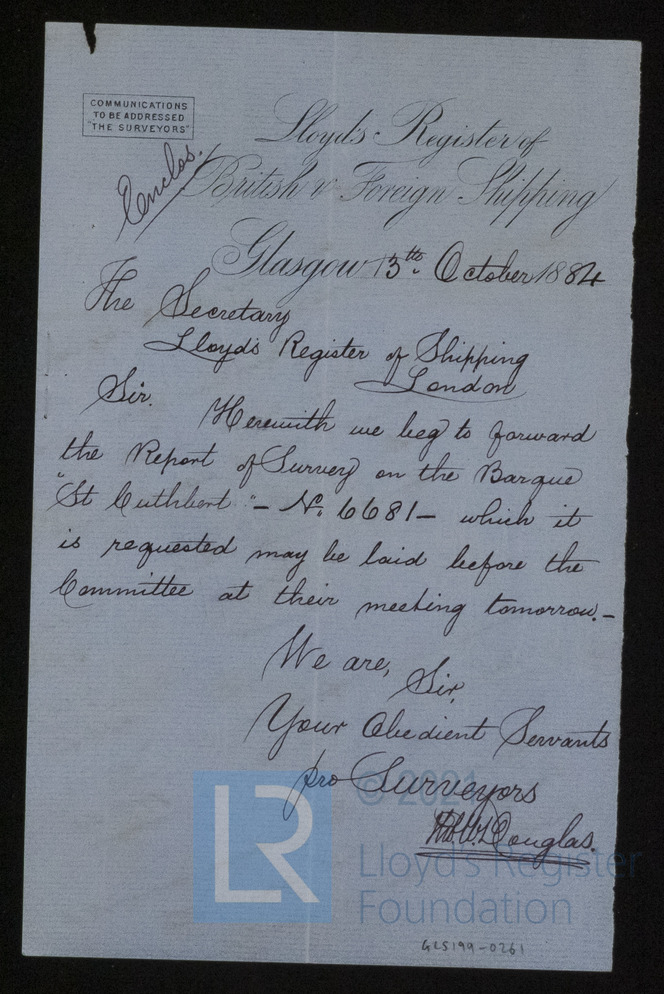 COMMUNICATIONS
TO BE ADDRESSED
"THE SURVEYORS"
Enclos.
Lloyd's Register of
British & Foreign Shipping
Glasgow 13th October 1884
The Secretary
Lloyd's Register of Shipping
London
Sir.
Herewith we beg to forward
the Report of Survey on the Barque
"St Cuthbert" - No. 6681 - which it
is requested may be laid before the
Committee at their meeting tomorrow.-
We are,
Sir,
Your Obedient Servants
pro Surveyors
Douglas.
LR
© 2021
Lloyd's Register
Foundation
GLS199-0261